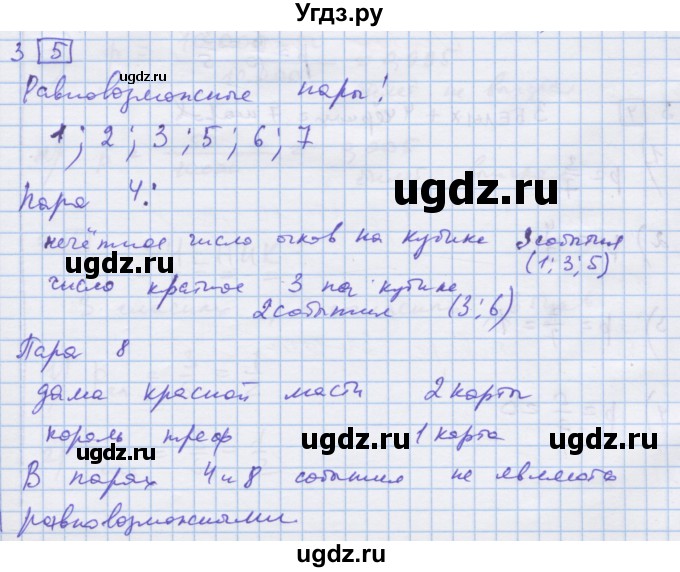 Угдз.ру
3 5
Равновозможные пары!
ugdz.ru
1; 2; 3; 5; 6; 7
Пара 4:
ugdz.ru
нечётное число очков на кубике 3 события
ugdz.ru
(1; 3; 5)
число кратное 3 на кубике
2 события (3; 6)
Пара 8
дама красной масти 2 карты
король треф 1 карта
ugdz.ru
ugdz.ru
В парах 4 и 8 события не являются
равновозможными
ugdz.ru
ugdz.ru